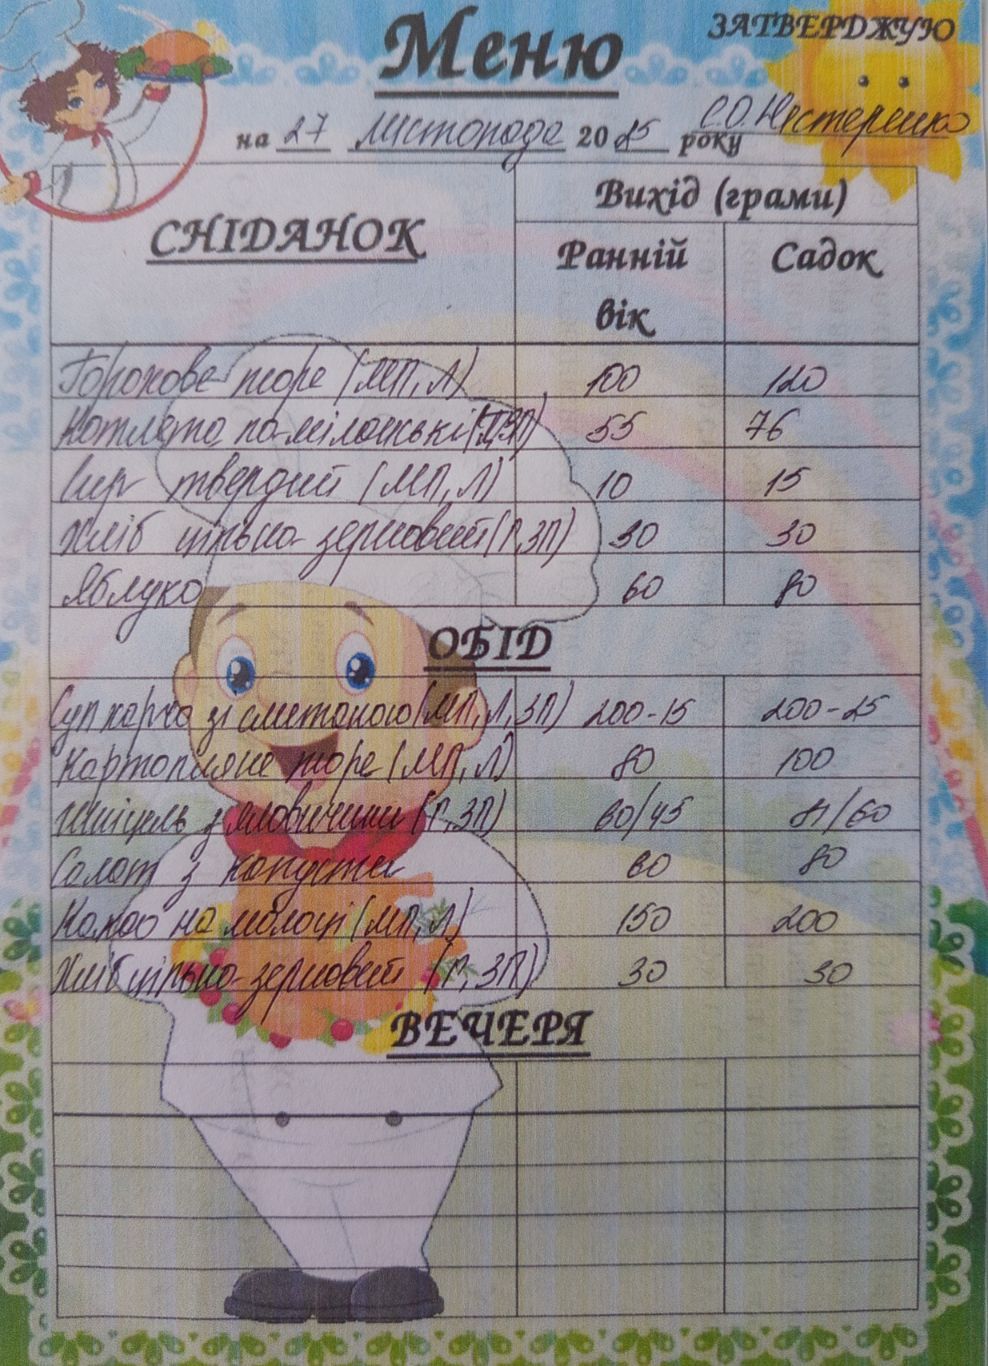 Меню
ЗАТВЕРДЖУЮ
на 27 листопада 2025 року С.О.Нестеренко
СНІДАНОК
Вихід (грами)
Ранній вік
Садок
Горохове пюре (МП, Л) 100 120
Котлета по-мілански (Г,ЗП) 55 76
Сир твердий (МП, Л) 10 15
Хліб цільно-зерновий (Г, ЗП) 30 30
Яблуко 60 80
ОБІД
Суп харчо зі сметаною (МП, Л, ЗП) 200-15 200-25
Картопляне пюре (МП, Л) 80 100
Шніцель з яловичини (Г, ЗП) 60/45 81/60
Салат з капусти 60 80
Какао на молоці (МП, Л) 150 200
Хліб цільно-зерновий (Г, ЗП) 30 30
ВЕЧЕРЯ